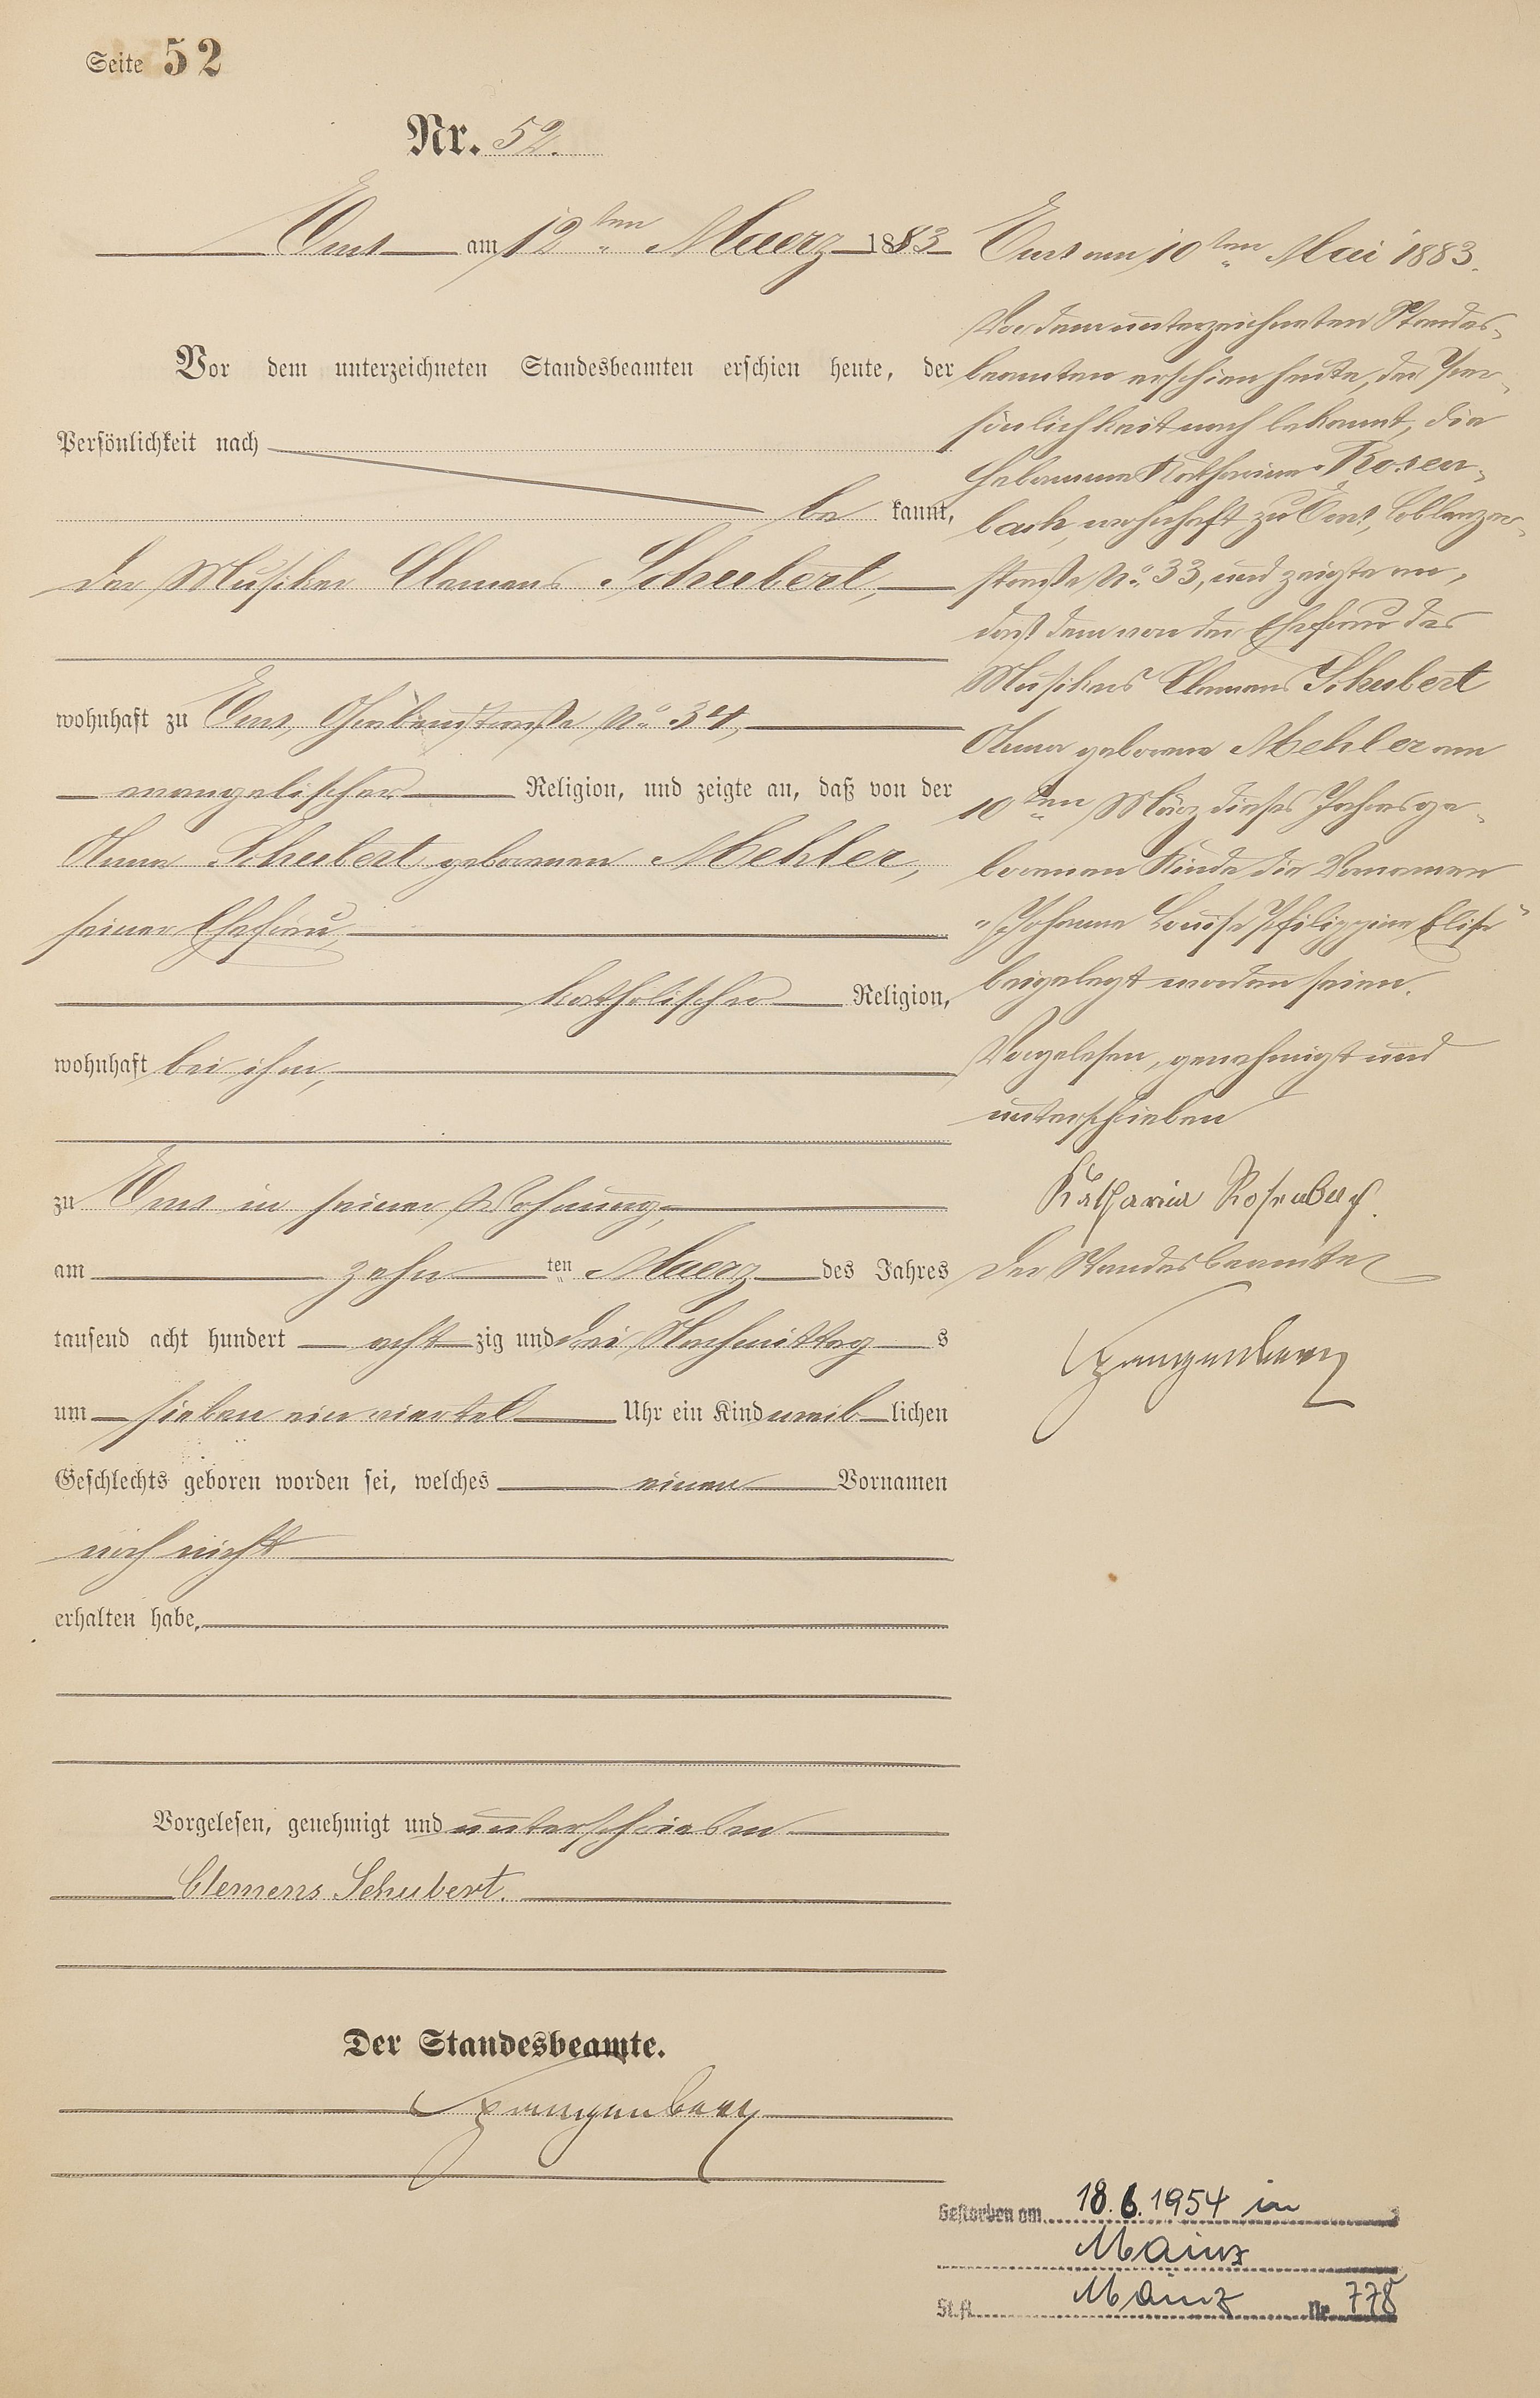 Seite 52
Nr. 52.
Ems am 12ten Maerz 1883
Vor dem unterzeichneten Standesbeamten erschien heute, der
Persönlichkeit nach
be kannt,
der Musiker Clemens Schubert,
wohnhaft zu Ems, Grabenstraße No 34,
evangelischer Religion, und zeigte an, daß von der
Anna Schubert geborenen Mehler,
seiner Ehefrau,
katholischer Religion,
wohnhaft bei ihm,
zu Ems in seiner Wohnung,
am zehn ten Maerz des Jahres
tausend acht hundert acht zig und drei Nachmittag s
um sieben ein viertel Uhr ein Kind weib lichen
Geschlechts geboren worden sei, welches einen Vornamen
noch nicht
erhalten habe.
Vorgelesen, genehmigt und unterschrieben
Clemens Schubert.
Der Standesbeamte.
Ems am 10ten Mai 1883.
Vor dem unterzeichneten Standes-
beamten erschien heute, der Per-
sönlichkeit nach bekannt, die
Hebamme Katharina Rosen-
bach, wohnhaft zu Ems, Coblenzer-
straße No. 33, und zeigte an,
daß dem von der Ehefrau des
Musikers Clemens Schubert
Anna geborene Mehler am
10ten März dieses Jahres ge-
borenen Kinde die Vornamen
"Johanna Louise Philippine Elise"
beigelegt worden seien.
Vorgelesen, genehmigt und
unterschrieben
Katharina Rosenbach.
Der Standesbeamte
Gestorben am 18.6.1954 in
Mainz
St.A. Mainz Nr. 778